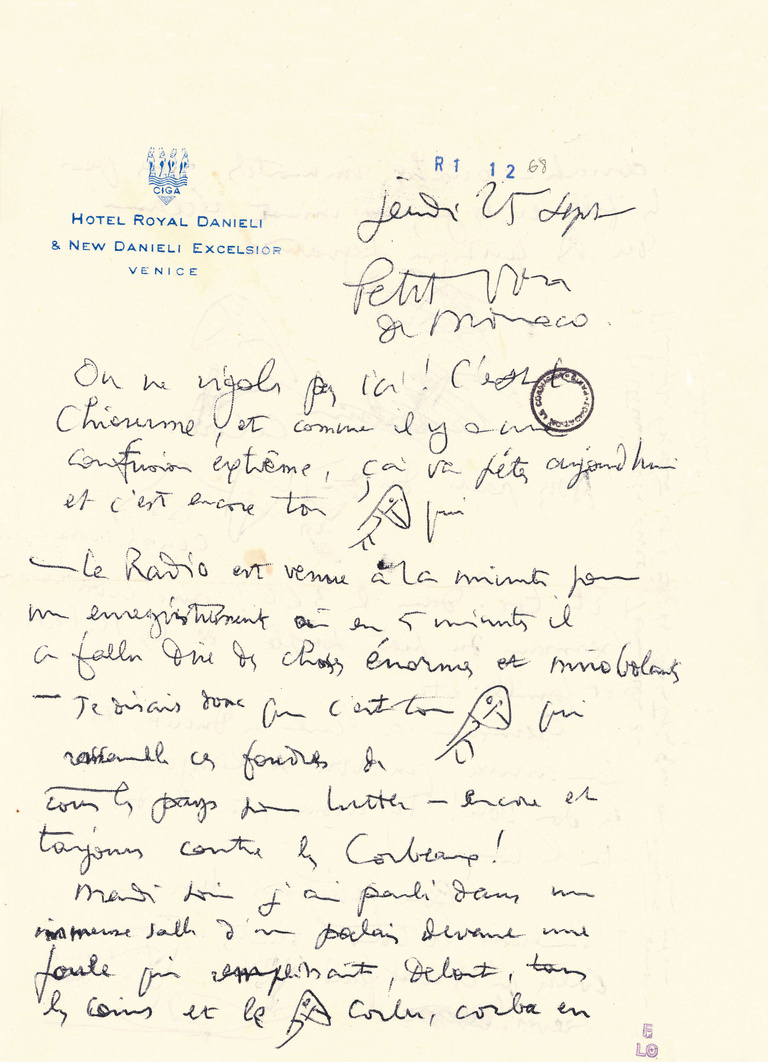 R1 12 68
CIGA
HOTEL ROYAL DANIELI
& NEW DANIELI EXCELSIOR
VENICE
jeudi 25 Sept
Petit Von
de Monaco.
On ne rigole pas ici! C'est le
et comme il y a une
confusion extrême, ça va fêter aujourd'hui
et c'est encore ton qui
— la Radio est venue à la minute pour
un enregistrement où en 5 minutes il
a fallu dire des choses énormes et mirobolants
— Je disais donc que c'est ton qui
rassemble ces foudres de
tous les pays pour lutter — encore et
toujours contre les Corbeaux!
Mardi soir j'ai parlé dans une
immense salle d'un palais devant une
foule qui remplissait, debout, tous
les coins et le Corbu, corba en
E
LO